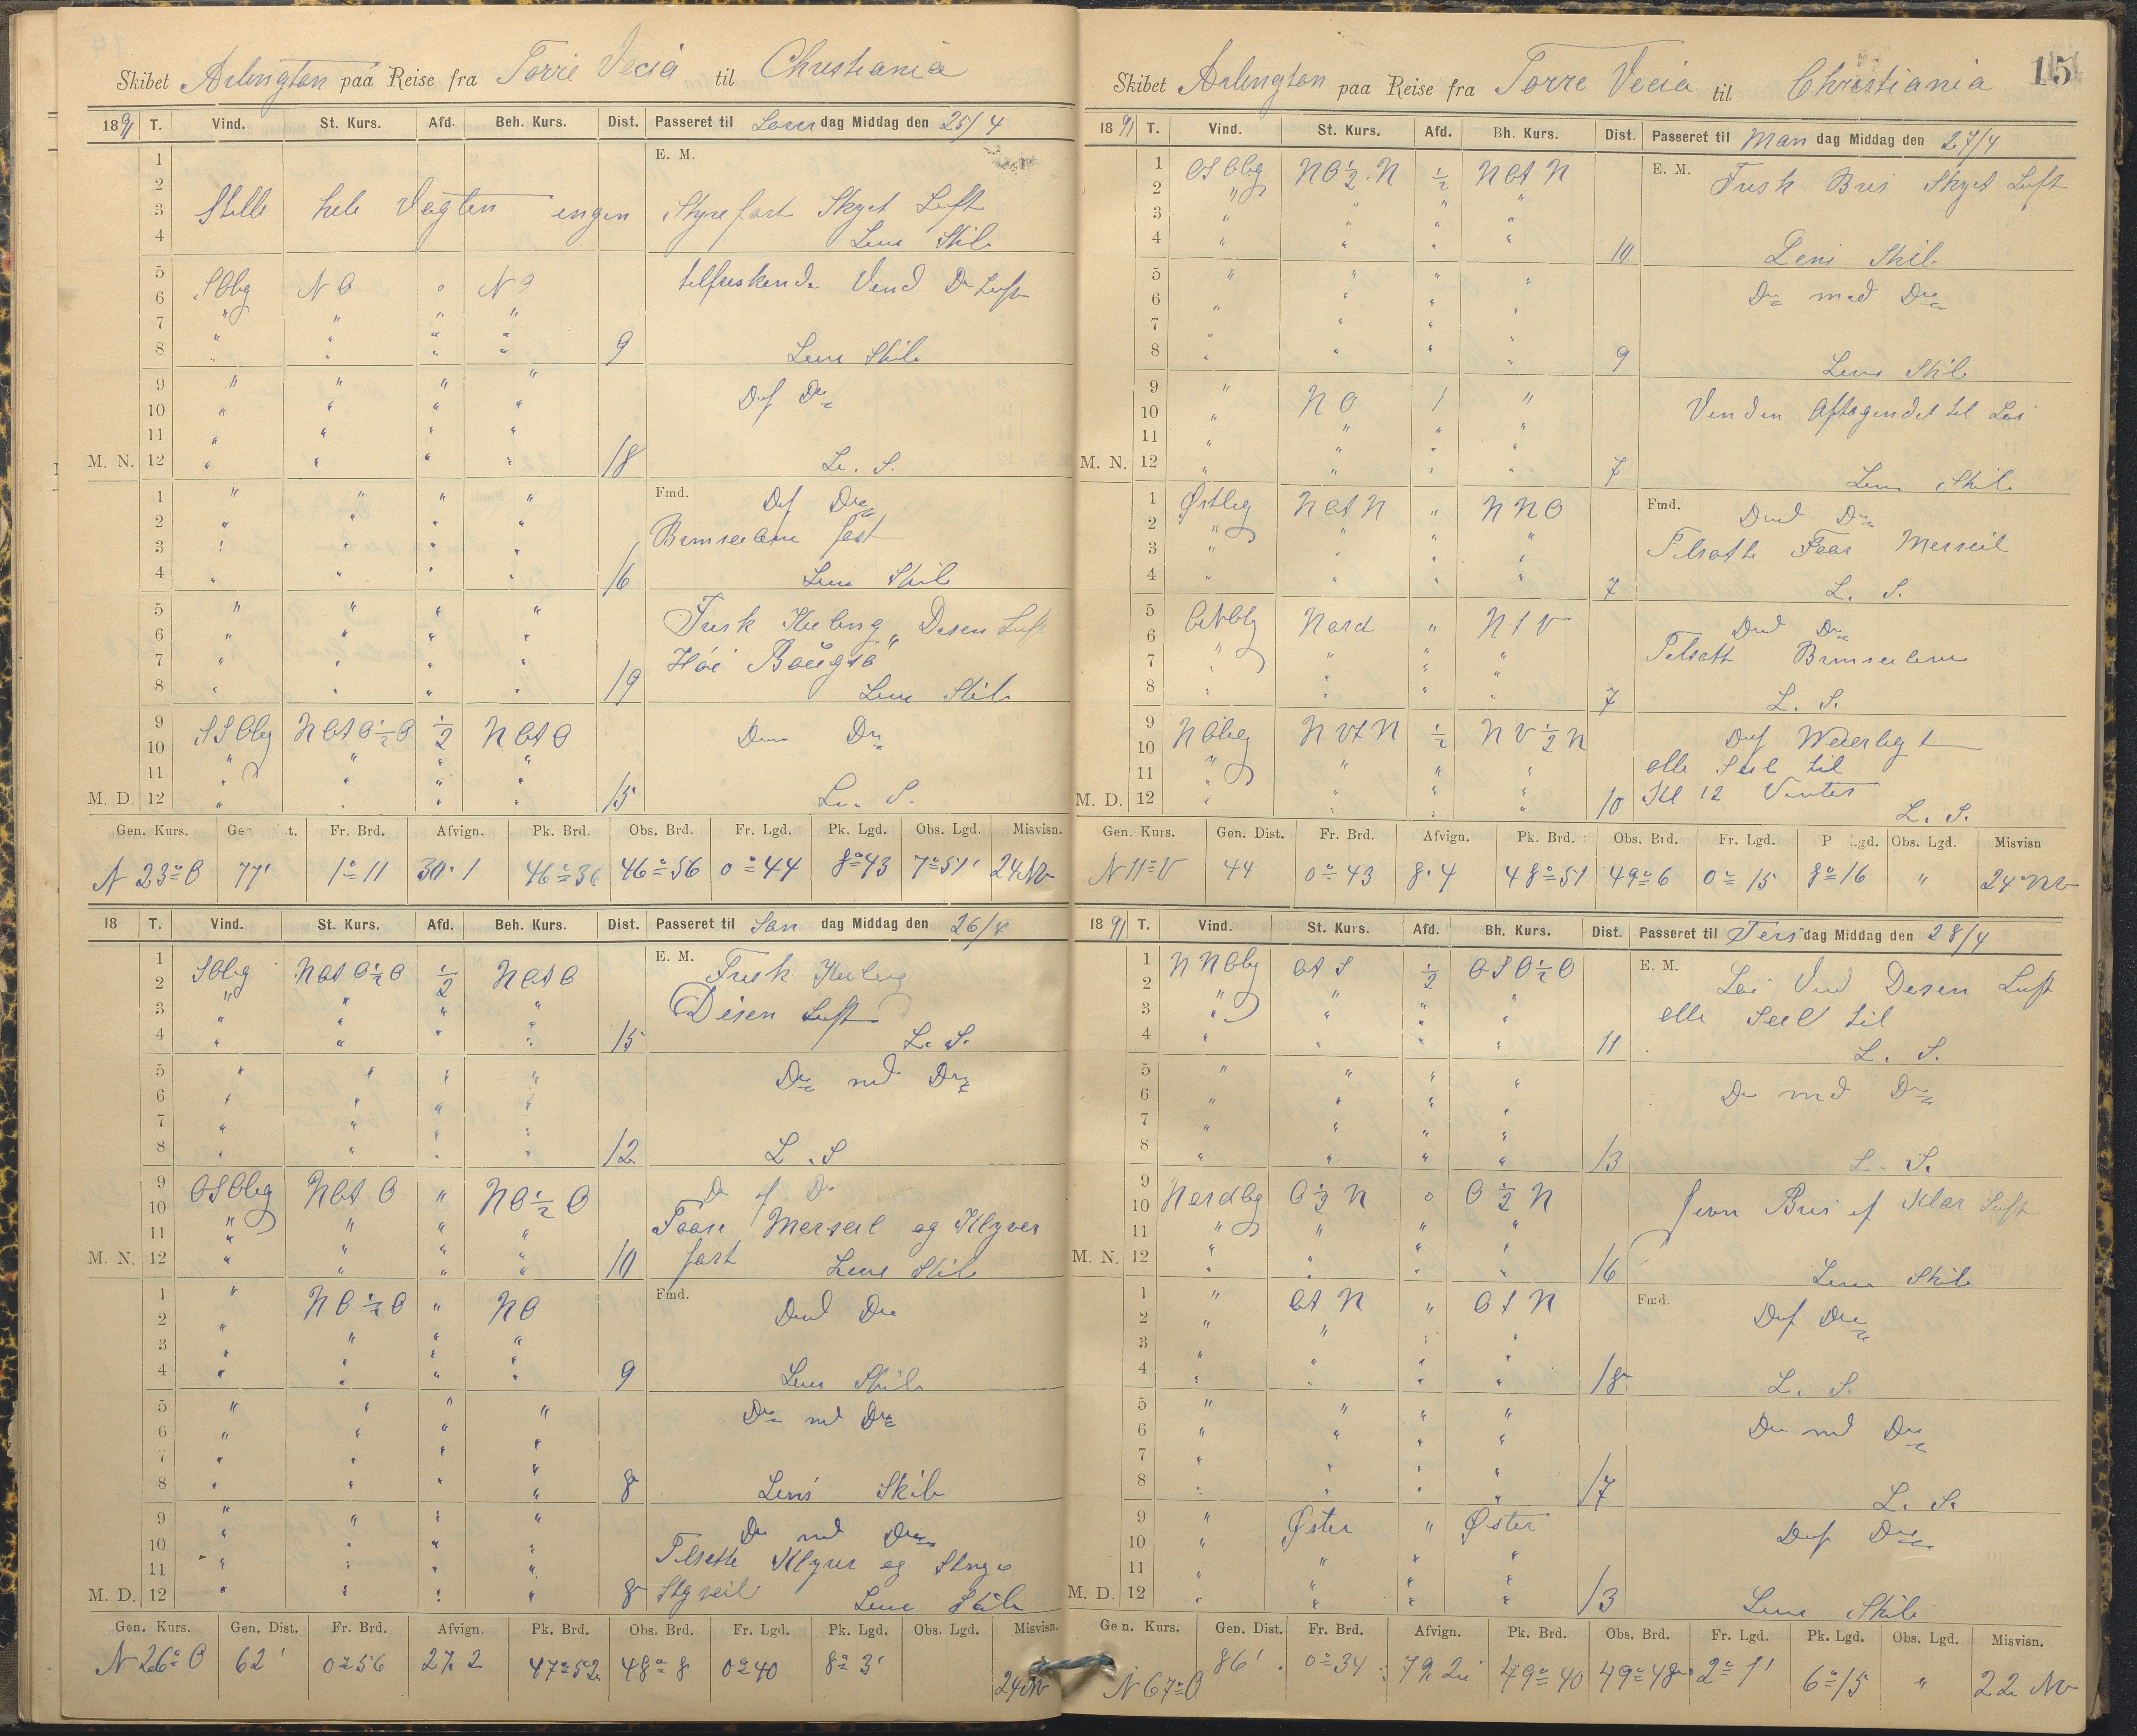 Skibet Arlington paa Reise fra Torre Vecia til Christiania
1891 T. Vind. St. Kurs. Afd. Beh. Kurs. Dist. Passeret til Løver dag Middag den 25/4
1 E. M.
2
3 Stille hele Vagten ingen Styrefart Skyet Luft
4 Lens Skib
5 SOlig NO o NO tilfriskende Vend Do Luft
6 " " " "
7 " " " "
8 " " " " 9 Lens Skib
9 " " " " D of Do
10 " " " "
11 " " " "
M. N. 12 " " " " 18 L. S.
1 " " " " Fmd. D of Do
2 " " " " Bramseilene fast
3 " " " "
4 " " " " 16 Lens Skib
5 " " " " Frisk Kuling Disen Luft
6 " " " "
7 " " " " Høi
8 " " " " 19 Lens Skib
9 SSOlig NOtO½O ½ NOtO Do
10 " " " "
11 " " " "
M. D. 12 " " " " 15 L. S.
Gen. Kurs. Ge t. Fr. Brd. Afvign. Pk. Brd. Obs. Brd. Fr. Lgd. Pk. Lgd. Obs. Lgd. Misvisn.
N 23° O 77' 1° 11 30.1 46° 36 46° 56 0° 44 8° 43 7° 51' 24 NV
18 T. Vind. St. Kurs. Afd. Beh. Kurs. Dist. Passeret til Søn dag Middag den 26/4
1 SOlig NOtO½O ½ NOtO E. M. Frisk Kuling
2 " " " "
3 " " " " Disen Luft
4 " " " " 15 L. S.
5 " " " " Do med Do
6 " " " "
7 " " " "
8 " " " " 12 L. S
9 OSOlig NOtO " NO½O D of Do
10 " " " " Foore Merseil og Klyver
11 " " " "
M. N. 12 " " " " 10 fast Lens Skib
1 " NO½O " NO Fmd. Do
2 " " " "
3 " " " "
4 " " " " 9 Lens Skib
5 " " " " Do med Do
6 " " " "
7 " " " "
8 " " " " 8 Lens Skib
9 " " " " Do med Do
10 " " " " Tilsatte Klyver og
11 " " " "
M. D. 12 " " " " 8 Lens Skib
Gen. Kurs. Gen. Dist. Fr. Brd. Afvign. Pk. Brd. Obs. Brd. Fr. Lgd. Pk. Lgd. Obs. Lgd. Misvisn.
N 26° O 62' 0° 56 27.2 47° 52 48° 8 0° 40 8° 3' 24 NV
15
Skibet Arlington paa Reise fra Torre Vecia til Christiania
1891 T. Vind. St. Kurs. Afd. Bh. Kurs. Dist. Passeret til Man dag Middag den 27/4
1 OSOlig NO½N ½ NOtN E. M. Frisk Bris Skyet Luft
2 " " " "
3 " " " "
4 " " " " 10 Lens Skib
5 " " " " Do med Do
6 " " " "
7 " " " "
8 " " " " 9 Lens Skib
9 " NO 1 " Venden Aftagendet til Løi
10 " " " "
11 " " " "
M. N. 12 " " " " 7 Lens Skib
1 Østlig NOtN " NNO Fmd. Do
2 " " " "
3 " " " " Tilsatte Foor Merseil
4 " " " " 7 L. S.
5 Nord " NtV Do
6 " " " "
7 " " " " Tilsatt Bramseilene
8 " " " " 7 L. S.
9 NOlig NVtN ½ NV½N
10 " " " "
11 " " " " alle Seil til
M. D. 12 " " " " 10 Kl 12 L. S.
Gen. Kurs. Gen. Dist. Fr. Brd. Afvign. Pk. Brd. Obs. Brd. Fr. Lgd. P Lgd. Obs. Lgd. Misvisn
N 11° V 44 0° 43 8.4 48° 51 49° 6 0° 15 8° 16 " 24° NV
1891 T. Vind. St. Kurs. Afd. Bh. Kurs. Dist. Passeret til Tirs dag Middag den 28/4
1 NNOlig OtS ½ OSO½O E. M. Løi Vind Disen Luft
2 " " " "
3 " " " " alle Seil til
4 " " " " 11 L. S.
5 " " " " Do med Do
6 " " " "
7 " " " "
8 " " " " 13 L. S.
9 Nordlig O½N o O½N Jevn Bris of Klar Luft
10 " " " "
11 " " " "
M. N. 12 " " " " 16 Lens Skib
1 " OtN " OtN Fmd. D of Do
2 " " " "
3 " " " "
4 " " " " 18 L. S.
5 " " " " Do med Do
6 " " " "
7 " " " "
8 " " " " 17 L. S.
9 " Øster " Øster D of Do
10 " " " "
11 " " " "
M. D. 12 " " " " 13 Lens Skib
Gen. Kurs. Gen. Dist. Fr. Brd. Afvign. Pk. Brd. Obs. Brd. Fr. Lgd. Pk. Lgd. Obs. Lgd. Misvisn.
N 67° O 86' 0° 34 79.2 49° 40 49° 48 2° 1' 6° 15 " 22 NV